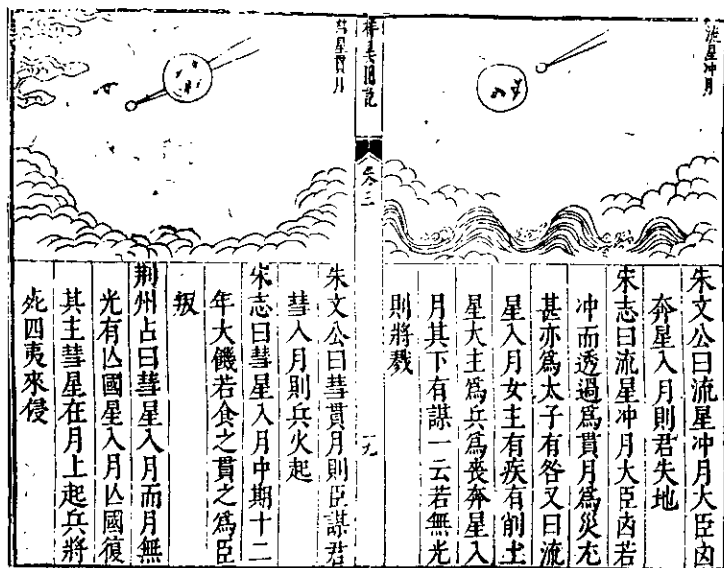 流星冲月
朱文公曰流星冲月大臣凶
奔星入月則君失地
宋志曰流星冲月大臣凶若
冲而透過爲貫月爲災尤
甚亦爲太子有咎又曰流
星入月女主有疾有削土
星大主爲兵爲喪奔星入
月其下有謀一云若無光
則將戮
卷三
彗星貫月
朱文公曰彗貫月則臣謀君
彗入月則兵火起
宋志曰彗星入月中期十二
年大饑若食之貫之爲臣
叛
荆州占曰彗星入月而月無
光有亾國星入月亾國復
其主彗星在月上起兵將
死四夷來侵